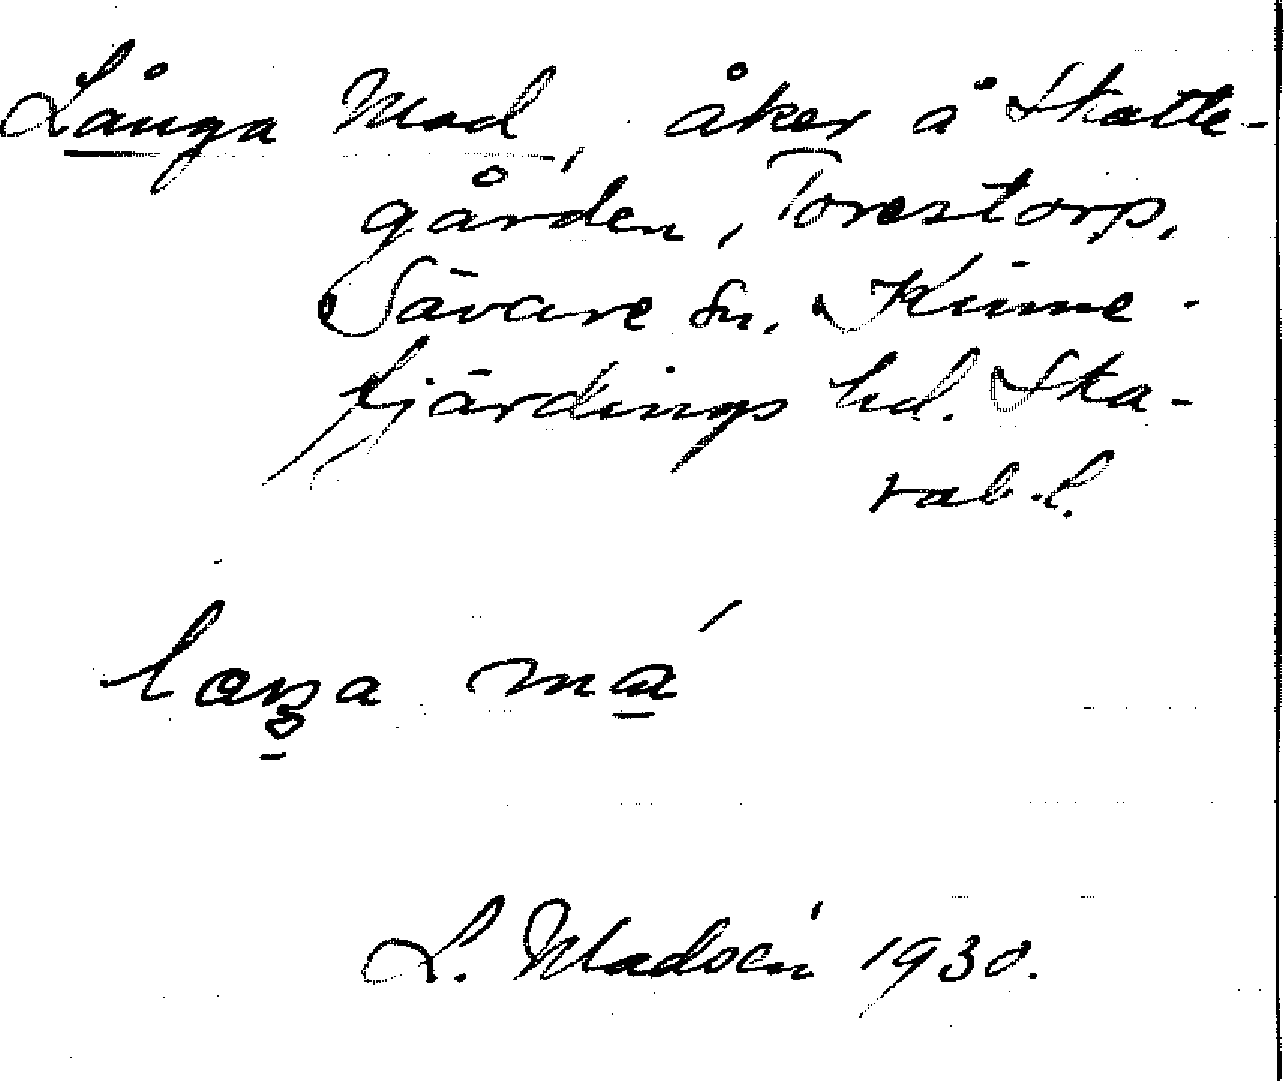 Långa Mad, åker å Skatte-
gården, Torestorp,
Sävare sn. Kinne-
fjärdings hd. Ska-
rab. l.
laŋa má
L. Madsén 1930.